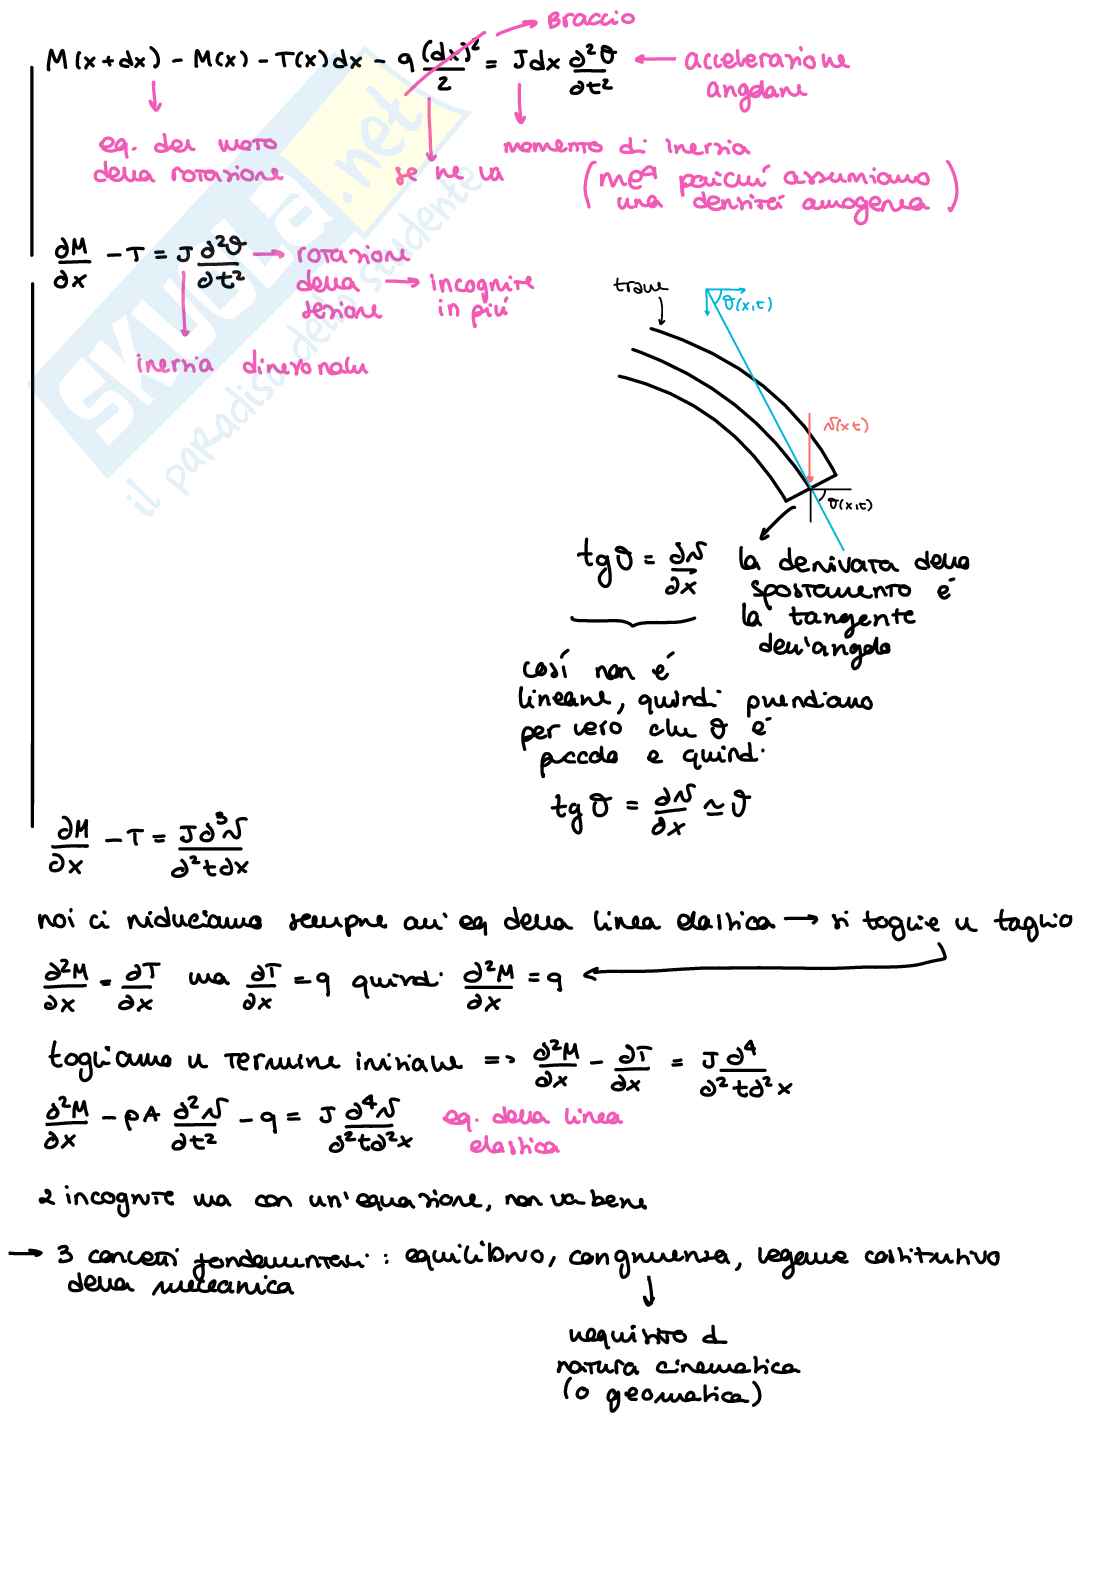 Braccio
M(x+dx) - M(x) - T(x)dx - q (dx)²/2 = J dx ∂²θ/∂t² ← accelerazione angolare
eq. del moto della rotazione
se ne va
momento di inerzia
(mea poiché assumiamo una densità omogenea)
∂M/∂x - T = J ∂²θ/∂t² → rotazione della sezione → incognite in più
inerzia
trave
θ(x,t)
v(x,t)
θ(x,t)
tg θ = ∂v/∂x
la derivata dello spostamento é la tangente dell'angolo
così non é lineare, quindi prendiamo per vero che θ é piccolo e quindi
tg θ = ∂v/∂x ≃ θ
∂M/∂x - T = J∂³v/∂²t∂x
noi ci riduciamo sempre all'eq della linea elastica → si toglie il taglio
∂²M/∂x - ∂T/∂x ma ∂T/∂x = q quindi ∂²M/∂x = q
togliamo il termine iniziale => ∂²M/∂x - ∂T/∂x = J∂⁴/∂²t∂²x
∂²M/∂x - ρA ∂²v/∂t² - q = J ∂⁴v/∂²t∂²x eq. della linea elastica
2 incognite ma con un'equazione, non va bene
→ 3 concetti fondamentali : equilibrio, congruenza, legame costitutivo
della meccanica
requisito di
natura cinematica
(o geomatica)
SKUOLA.net
il paradiso dello studente